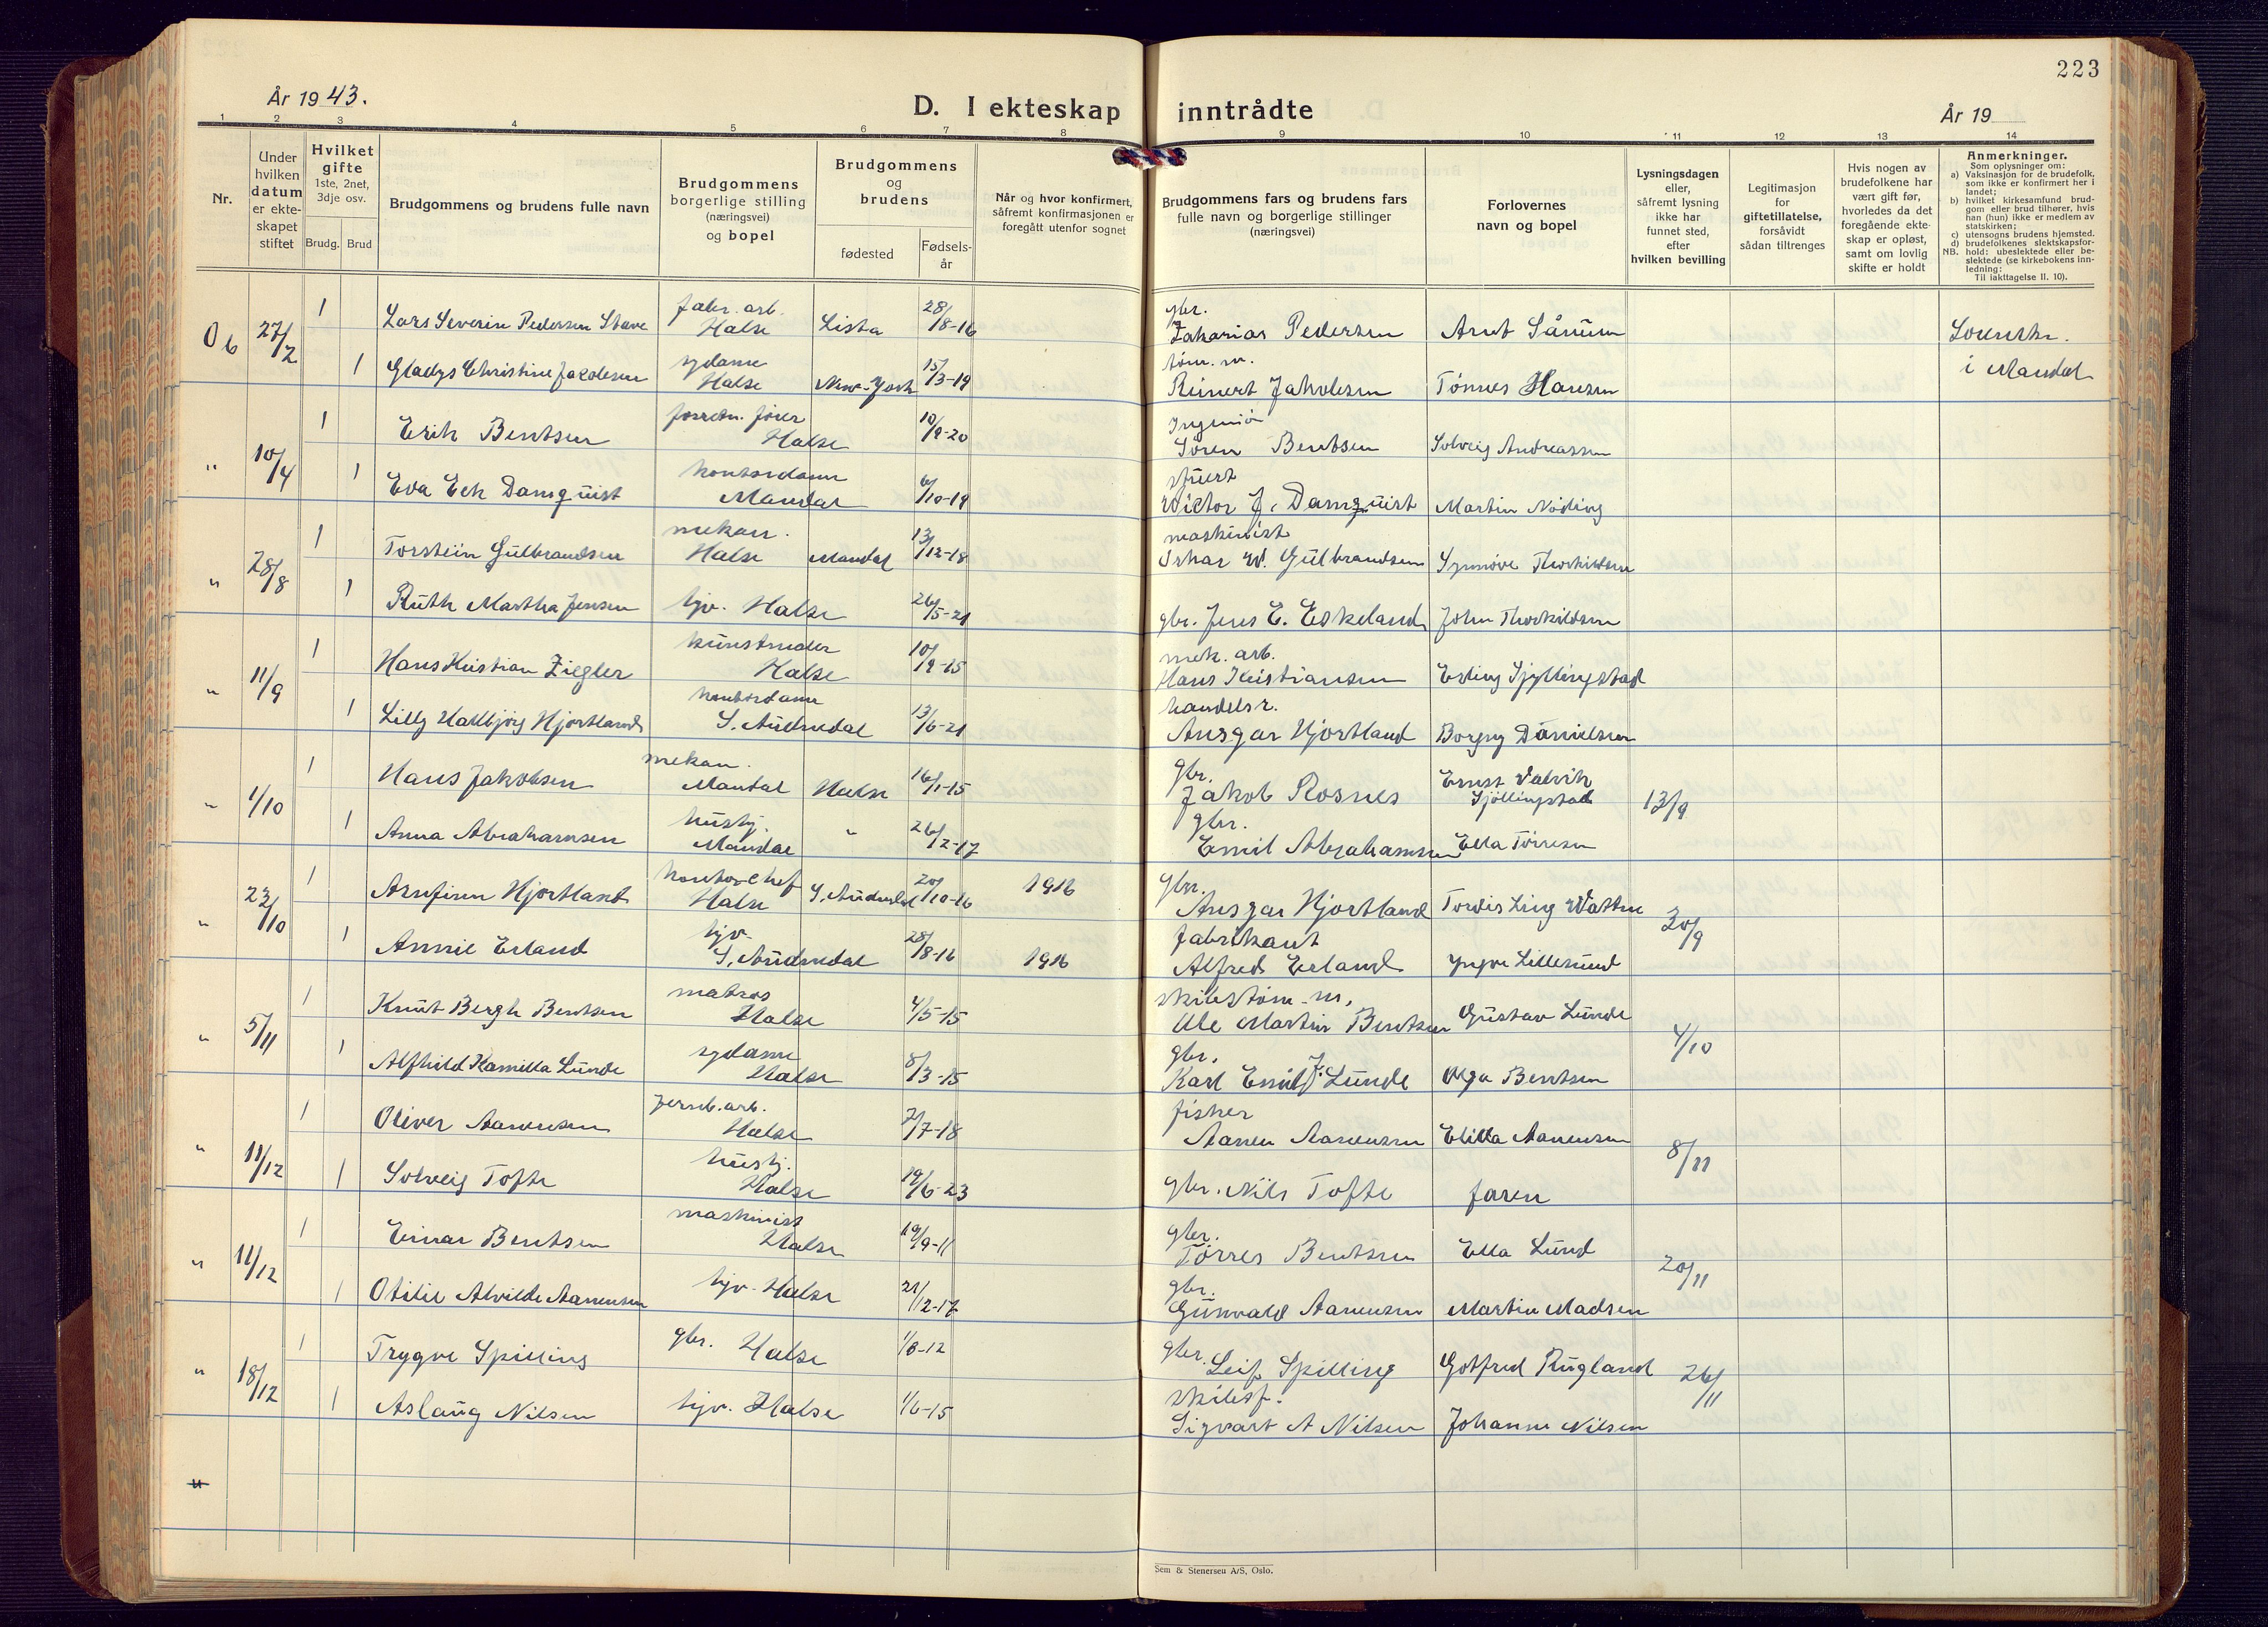 223
År 1943.
D. I ekteskap inntrådte
År 19
1 2 3 4 5 6 7 8 9 10 11 12 13 14
Nr.
Under hvilken datum er ekteskapet stiftet
Hvilket gifte
1ste, 2net, 3dje osv.
Brudg. Brud
Brudgommens og brudens fulle navn
Brudgommens borgerlige stilling (næringsvei) og bopel
Brudgommens og brudens
fødested
Fødsels-år
Når og hvor konfirmert, såfremt konfirmasjonen er foregått utenfor sognet
Brudgommens fars og brudens fars fulle navn og borgerlige stillinger (næringsvei)
Forlovernes navn og bopel
Lysningsdagen eller, såfremt lysning ikke har funnet sted, efter hvilken bevilling
Legitimasjon for giftetillatelse, forsåvidt sådan tiltrenges
Hvis nogen av brudefolkene har vært gift før, hvorledes da det foregående ekteskap er opløst, samt om lovlig skifte er holdt
Anmerkninger.
Som oplysninger om:
a) Vaksinasjon for de brudefolk, som ikke er konfirmert her i landet;
b) hvilket kirkesamfund brudgom eller brud tilhører, hvis han (hun) ikke er medlem av statskirken;
c) utensogns brudens hjemsted.
d) brudefolkenes slektskapsforhold: ubeslektede eller beslektede (se kirkebokens innledning:
NB. Til iakttagelse II. 10).
O b 27/2 1 Lars Severin Pedersen Stave fabr. arb. Halse Lista 28/8-16 gbr. Zakarias Pedersen Arnt Sånum
1 Gladys Christine Jacobsen sydame Halse New-York 15/3-19 tøm. m. Reinert Jakobsen Tønnes Hansen i Mandal
" 10/4 1 Erik Bentsen forretn. fører Halse 10/9-20 Ingeniør Søren Bentsen Solveig Andreassen
1 Eva Eek Damquist kontordame Mandal 6/10-19 stuert Victor J. Damquist Martin Nöding
" 28/8 1 Torstein Gulbrandsen mekan. Halse Mandal 13/12-18 maskinist Oskar W. Gulbrandsen Synnøve Thorkildsen
1 Ruth Martha Jensen hjv. Halse 26/5-21 gbr. Jens E. Eskeland John Thorkildsen
" 11/9 1 Hans Kristian Ziegler kunstmaler Halse 10/9-15 mek. arb. Hans Kristiansen Erling Sjøllingstad
1 Lilly Hallbjörg Hjortland kontordame S. Audnedal 13/6-21 handelsr. Ansgar Hjortland Borgny Danielsen
" 1/10 1 Hans Jakobsen mekan. Mandal Halse 16/1-15 gbr. Jakob Rosnes Ernst Valvik Sjöllingstad 13/9
1 Anna Abrahamsen hushj. Mandal " 26/2-17 gbr. Emil Abrahamsen Ella Tørresen
" 23/10 1 Arnfinn Hjortland kontorchef Halse S. Audnedal 20/10-16 1916 gbr. Ansgar Hjortland Tordis Ling Vatne 30/9
1 Annie Erland hjv. S. Audnedal 28/8-16 1916 fabrikant Alfred Erland Yngve Lillesund
" 5/11 1 Knut Bergh Bentsen matros Halse 4/5-15 skibstøm. m. Ole Martin Bentsen Gustav Lunde 4/10
1 Alfhild Kamilla Lunde sydame Halse 8/3-15 gbr. Karl Emil J. Lunde Olga Bentsen
" 11/12 1 Oliver Aanensen jernb. arb. Halse 7/7-18 fisker Aanen Aanensen Elida Aanensen 8/11
1 Solveig Tofte hushj. Halse 19/6-23 gbr. Nils Tofte faren
" 11/12 1 Einar Bentsen maskinist Halse 19/9-11 gbr. Tørres Bentsen Ella Lund 20/11
1 Otilie Alvilde Aanensen hjv. Halse 21/12-17 gbr. Gunvald Aanensen Martin Madsen
" 18/12 1 Trygve Spilling gbr. Halse 1/8-12 gbr. Leif Spilling Gotfred Rugland 26/11
1 Aslaug Nilsen hjv. Halse 1/6-15 skibsf. Sigvart A Nilsen Johanne Nilsen
"
Sem & Stenersen A/S, Oslo.